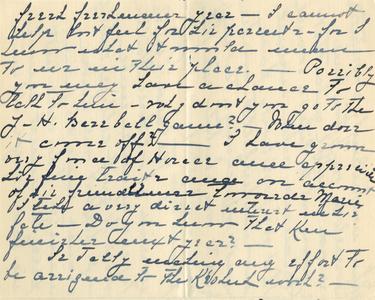 freed freshman year — I cannot
help but feel for his parents — for I
know what it would mean
to us in their place. — Possibly
you may have a chance to
talk to him — why don't you go to the
Y-H. Baseball game? When does
it come off? — I have grown
very fond of Horace and appreciate
his fine traits and on account
of his friendliness towards
I take a very direct interest in his
fate — Do you know that Ken
finishes next year? —
Is Sally making any effort to
be assigned to the work? —